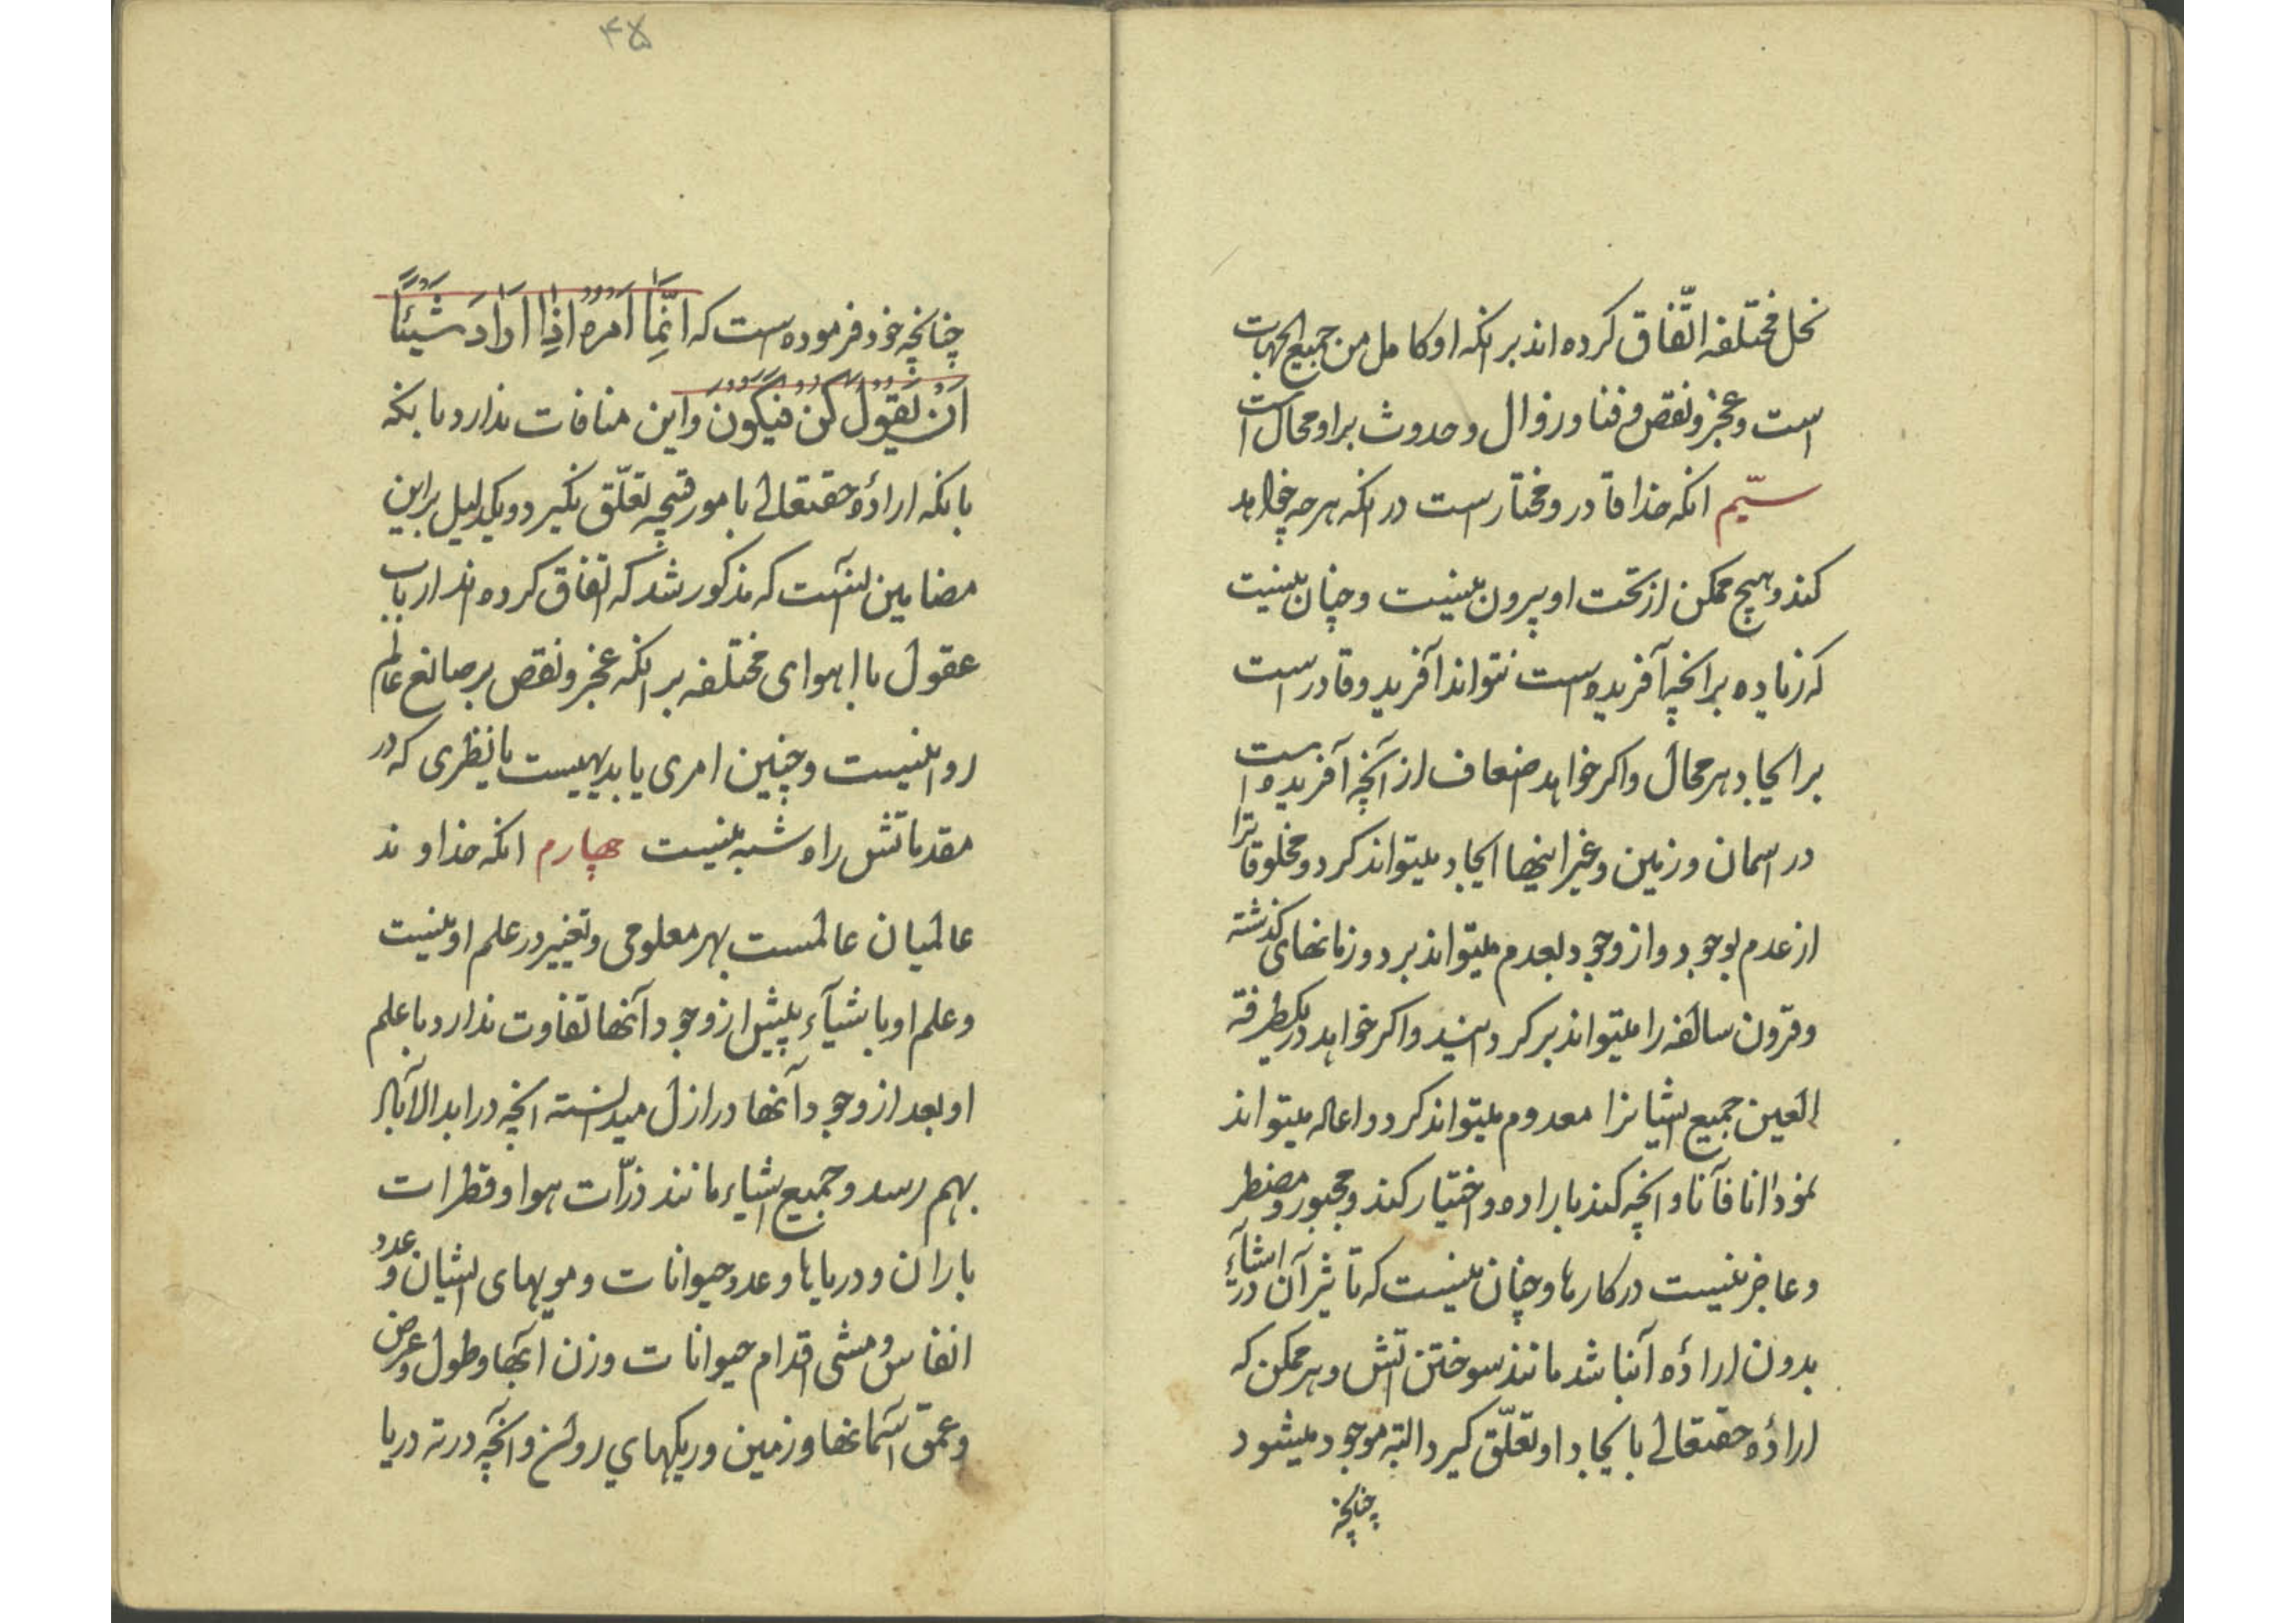 نحل مختلفه اتّفاق كرده اند برانكه او كامل من جميع الجهات
است و عجز و نقص و فنا و زوال و حدوث براو محال است
سيّم انكه خدا قادر و مختار است در انكه هرچه خواهد
كند و هيچ ممكن از تحت او بيرون نيست و چنان نيست
كه زياده برانچه آفريده است نتواند آفريد و قادر است
بر ايجاد هر محال و اكر خواهد اضعاف از آنچه آفريده است
در اسمان و زمين و غير اينها ايجاد ميتواند كرد و مخلوقاترا
از عدم بوجود و از وجود بعدم ميتواند برد و زمانهاى كذشته
و قرون سالفه را ميتواند بركردانيد و اكر خواهد در يكطرفة
العين جميع اشيانرا معدوم ميتواند كرد و اعاله ميتواند
نمود انا فآنا و انچه كند باراده و اختيار كند و مجبور و مضطر
و عاجز نيست در كارها و چنان نيست كه تأثير آن در اشيآء
بدون ارادۀ آنباشد مانند سوختن اتش و هر ممكن كه
ارادۀ حقتعالى بايجاد او تعلّق كيرد البته موجود ميشود
چنانچه
۴۵
چنانچه خود فرموده است كه انّما امره اذا اراد شيئًا
ان نقول كن فيكون و اين منافات ندارد بانكه
بانكه ارادۀ حقتعالى بامور قبيحه تعلّق نكيرد و يكدليل براين
مضامين انست كه مذكور شد كه اتفاق كرده اند ارباب
عقول با اهواى مختلفه بر انكه عجز و نقص بر صانع عالم
روا نيست و چنين امرى يا بديهيست يا نظرى كه در
مقدماتش راه شبه نيست چهارم انكه خداوند
عالميان عالمست بهر معلومى و تغيير در علم او نيست
و علم او باشيآء پيش از وجود آنها تفاوت ندارد با علم
او بعد از وجود آنها در ازل ميدانسته انچه در ابد الآباد
بهم رسد و جميع اشياء مانند ذرّات هوا و قطرات
باران و درياها و عدد حيوانات و مويهاى ايشان و عدد
انفاس و مشى اقدام حيوانات و وزن ابها و طول و عرض
و عمق آسمانها و زمين و ريكهاي روان و آنچه در ته دريا